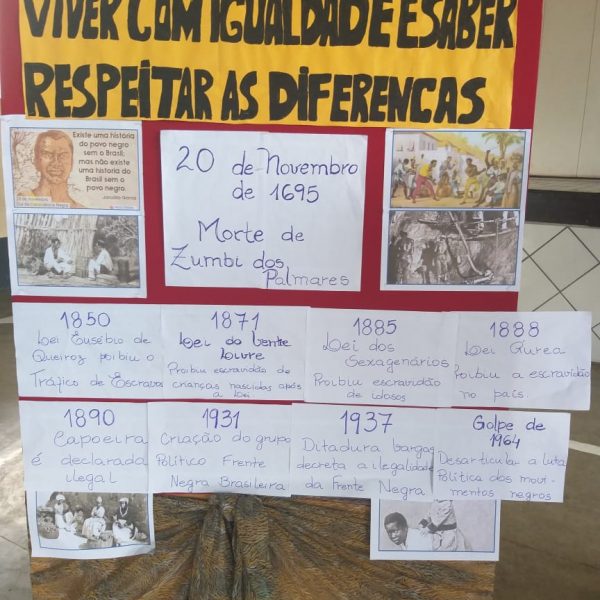 VIVER COM IGUALDADE E SABER
RESPEITAR AS DIFERENCAS
Existe uma história
do povo negro
sem o Brasil,
mas não existe
uma história do
Brasil sem o
povo negro.
20 de Novembro
de 1695
Morte de
Zumbi dos
Palmares
1850
Lei Eusébio de
Queiroz proibiu o
Tráfico de Escravos
1871
Lei do Ventre
Livre
Proibiu escravidão de
crianças nascidas após
a lei
1885
Lei dos
Sexagenários
Proibiu escravidão
de idosos
1888
Lei Áurea
Proibiu a escravidão
no país.
1890
Capoeira
é declarada
ilegal
1931
Criação do grupo
Político Frente
Negra Brasileira
1937
Ditadura Vargas
decreta a ilegalidade
da Frente Negra
Golpe de
1964
Desarticular a luta
Política dos movi-
mentos negros